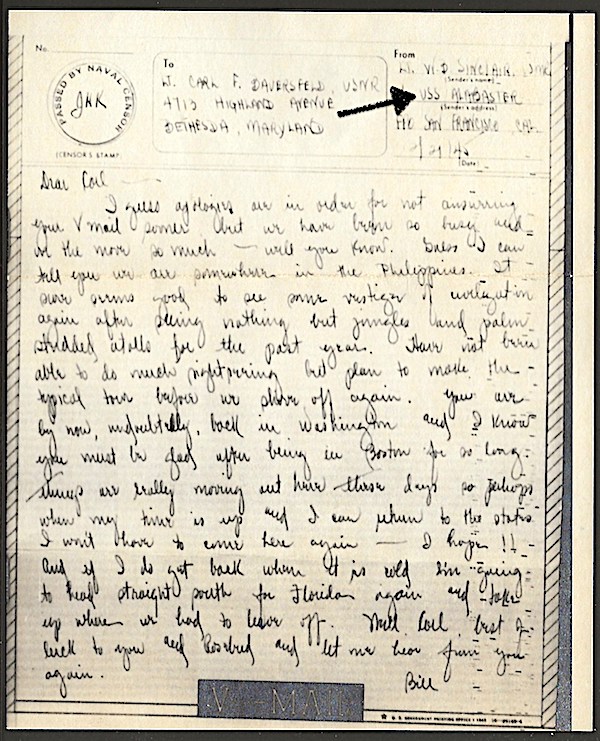 No.
PASSED BY NAVAL CENSOR
JHK
(CENSOR'S STAMP)
To
Lt. CARL F. DAUERSFELD, USNR
4713 HIGHLAND AVENUE
BETHESDA, MARYLAND
From
Lt. W. D SINCLAIR, USNR
(Sender's name)
USS ALABASTER
(Sender's address)
FPO SAN FRANCISCO CAL.
/21/45
(Date)
Dear Carl —
I guess apologies are in order for not answering
your V mail sooner but we have been so busy and
on the move so much — well you know. Guess I can
tell you we are somewhere in the Philippines. It
sure seems good to see some vestiges of civilization
again after seeing nothing but jungles and palm
studded atolls for the past year. Have not been
able to do much sightseeing but plan to make the
typical tour before we shove off again. You are
by now, undoubtedly, back in Washington and I know
you must be glad after being in Boston for so long.
Things are really moving out here these days so perhaps
when my time is up and I can return to the states
I won't have to come here again — I hope !!
And if I do get back when it is cold I'm going
to head straight south for Florida again and take
up where we had to leave off. Well Carl best of
luck to you and Rosebud and let me hear from you
again.
Bill
V···—MAIL
U. S. GOVERNMENT PRINTING OFFICE : 1943